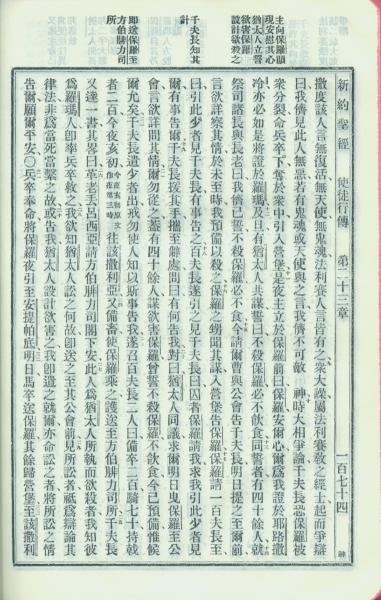 新約聖經 使徒行傳 第二十三章 一百七十四
主向保羅顯
現安慰其心
猶太人立誓
欲害保羅
設計欲殺之
千夫長知其
計
即送保羅至
方伯腓力司
所
撒度該人言無復活無天使無鬼魂法利賽人言皆有之衆大譟屬法利賽敎之經士起而爭辯
曰我儕見此人無惡若有鬼魂或天使與之言我儕不可敵 神時大相爭論千夫長恐保羅被
衆分裂命兵卒下奪於衆中引入營堡是夜主立於保羅前曰保羅安爾心爾爲我證於耶路撒
冷亦必如是將證於羅瑪及旦有猶太人共謀誓曰不殺保羅必不飮食同誓者有四十餘人就
祭司諸長與長老曰我儕已誓不殺保羅必不食今請爾曹與公會告千夫長明日提之至爾前
言欲詳察其情於未至時我預備以殺之保羅之甥聞其謀入營堡告保羅保羅請一百夫長至
曰引此少者見千夫長有事告之百夫長遂引之見千夫長曰囚者保羅請我求我引此少者見
爾有事告爾千夫長執其手攜至僻處問曰有何告我對曰猶太人同議求爾明日曳保羅至公
會言欲詳問其情爾勿從之蓋有四十餘人謀欲害保羅曾誓不殺保羅不飮食今已預備惟候
爾允矣千夫長遣少者出戒勿使人知以斯事告我遂召百夫長二人曰備卒二百騎七十持戟
者二百今夜亥初往該撒利亞又備畜使保羅乘之護送至方伯腓力司所千夫長
又達一書其畧曰革老丟呂西亞請方伯腓力司閣下安此人爲猶太人所執而欲殺者我知彼
爲羅瑪人即率兵卒救之我欲知猶太人訟之何故即送之至其公會前見所訟者祗爲辯論其
律法非爲當死當繫之故或告我猶太人設計欲害之我即遣之就爾亦命訟之者將所訟之情
告爾願爾平安〇兵卒奉命將保羅夜引至安提帕底明日馬卒送保羅其餘歸營堡至該撒利